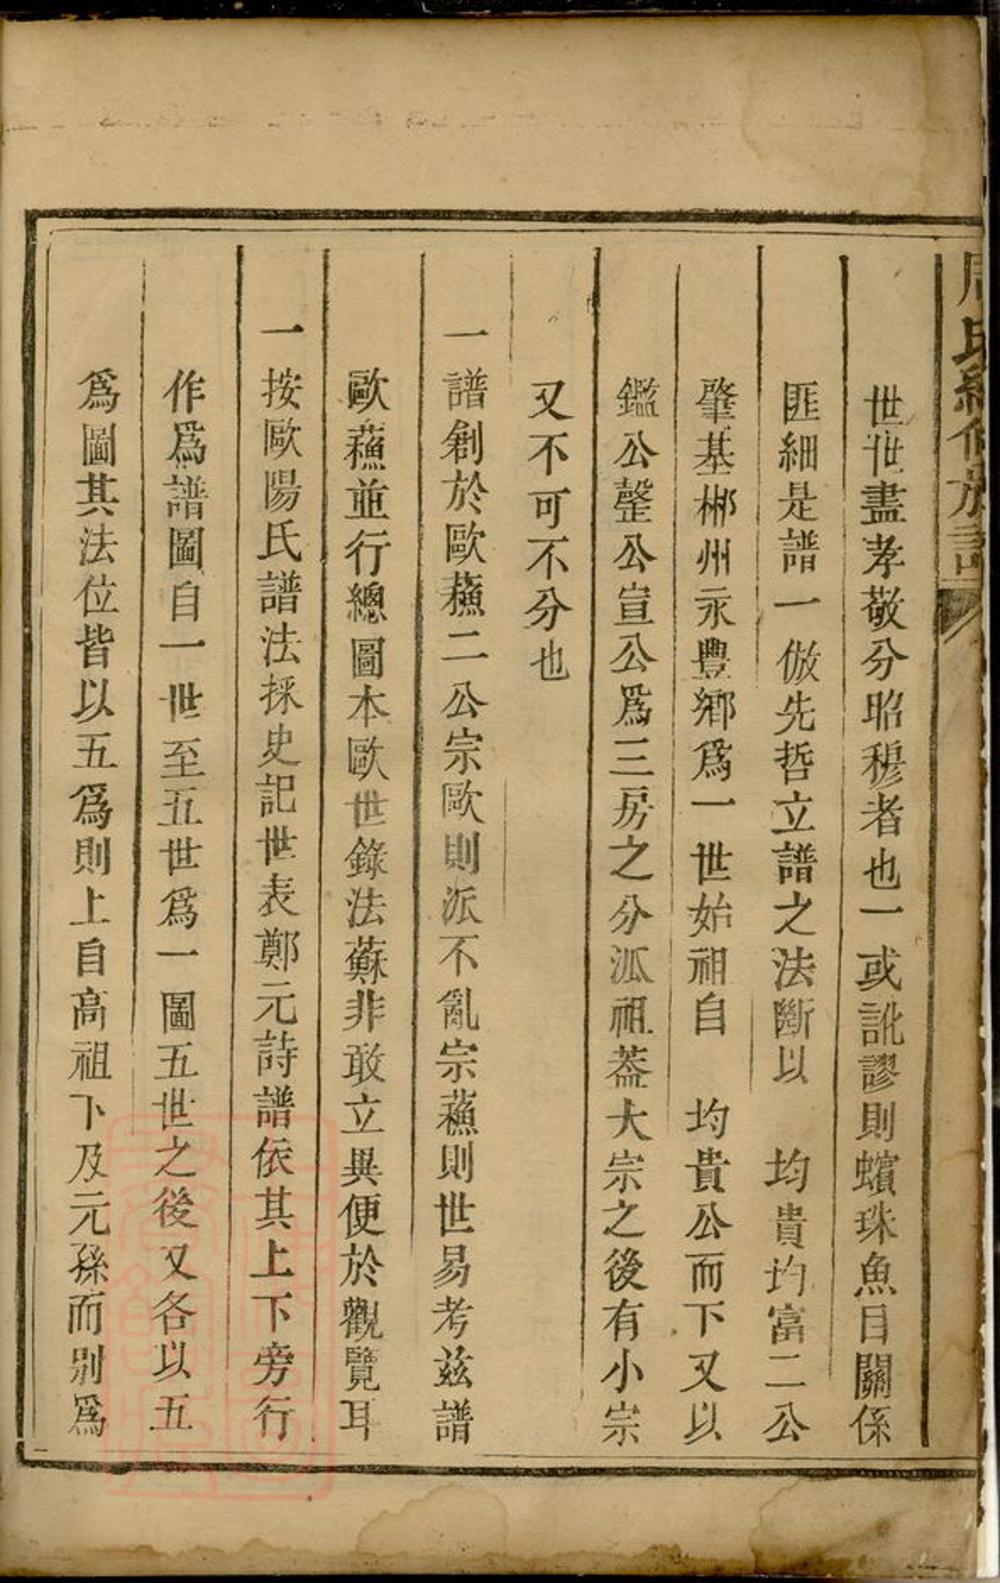 周氏續修族譜
世世盡孝敬分昭穆者也一或訛謬則蠙珠魚目關係
匪細是譜一倣先哲立譜之法斷以　均貴均富二公
肇基郴州永豐鄉爲一世始祖自　均貴公而下又以
鑑公㲄公宣公爲三房之分派祖蓋大宗之後有小宗
又不可不分也
一譜創於歐蘓二公宗歐則派不亂宗蘓則世易考兹譜
歐蘓並行總圖本歐世錄法蘇非敢立異便於觀覽耳
一按歐陽氏譜法採史記世表鄭元詩譜依其上下旁行
作爲譜圖自一世至五世爲一圖五世之後又各以五
爲圖其法位皆以五爲則上自高祖下及元孫而别爲